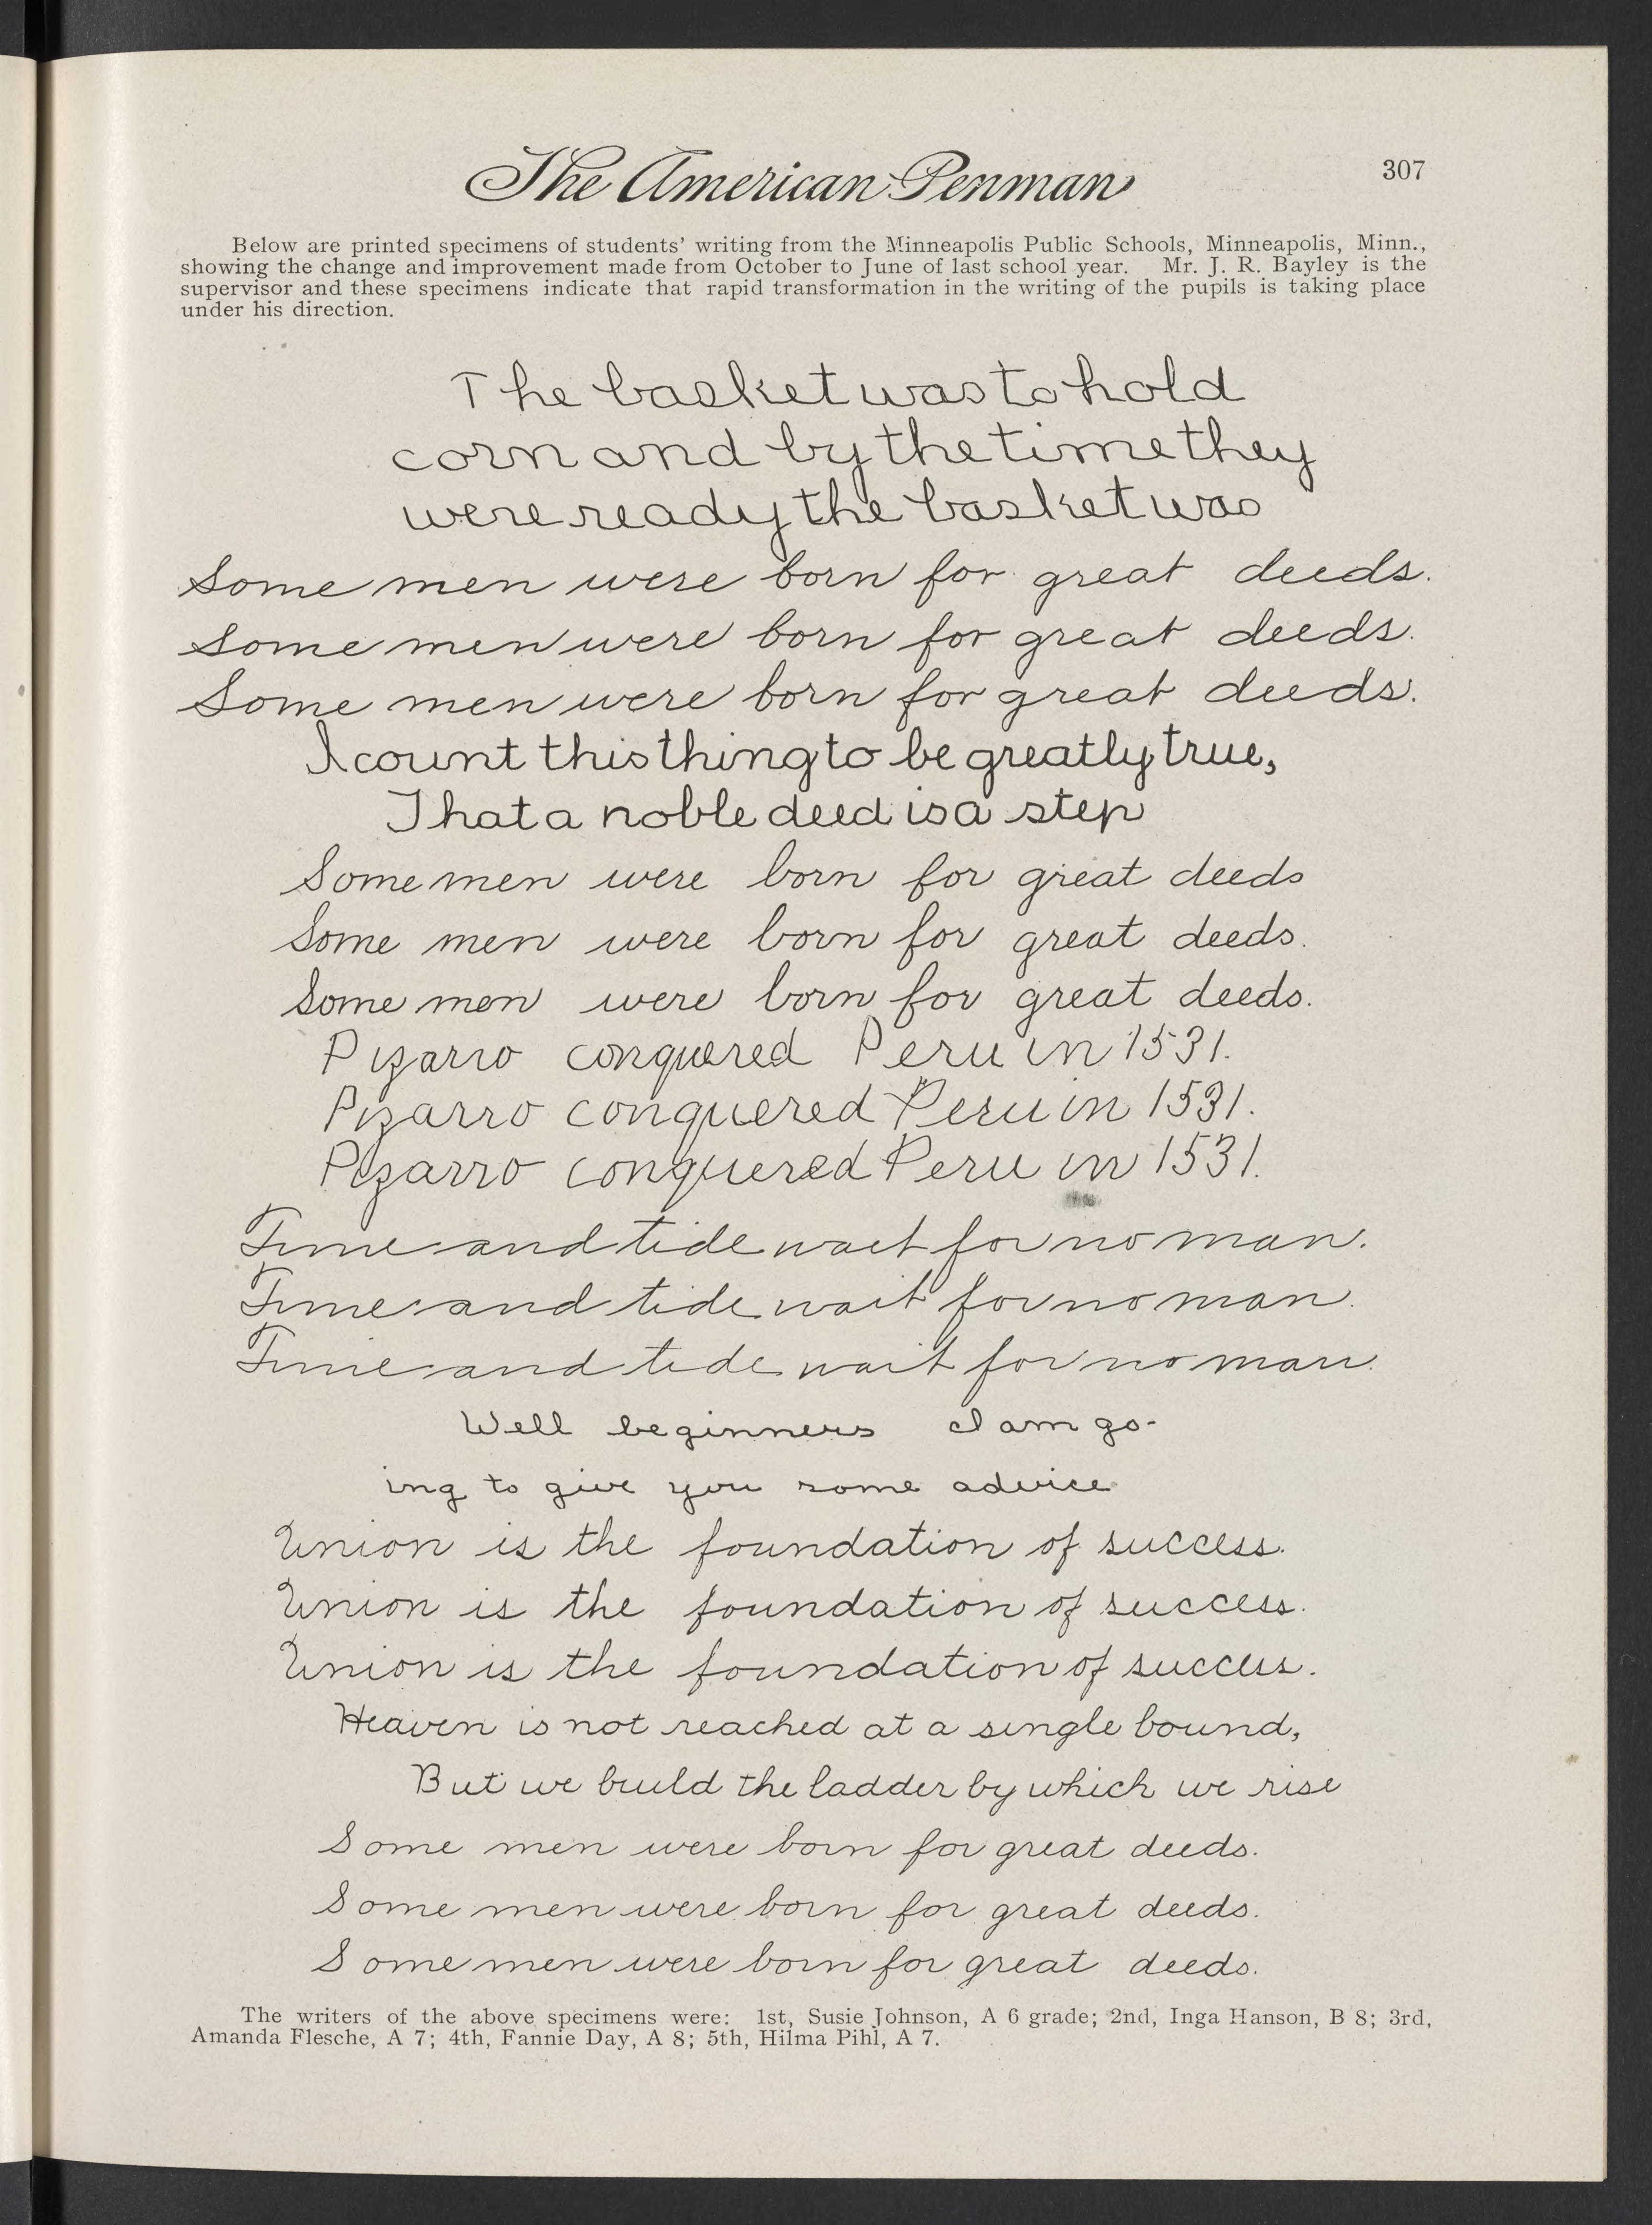 The American Penman
307
Below are printed specimens of students' writing from the Minneapolis Public Schools, Minneapolis, Minn.,
showing the change and improvement made from October to June of last school year. Mr. J. R. Bayley is the
supervisor and these specimens indicate that rapid transformation in the writing of the pupils is taking place
under his direction.
The basket was to hold
corn and by the time they
were ready the basket was
Some men were born for great deeds.
Some men were born for great deeds.
Some men were born for great deeds.
I count this thing to be greatly true,
That a noble deed is a step
Some men were born for great deeds
Some men were born for great deeds.
Some men were born for great deeds.
Pizarro conquered Peru in 1531.
Pizarro conquered Peru in 1531.
Pizarro conquered Peru in 1531.
Time and tide wait for no man.
Time and tide wait for no man.
Time and tide wait for no man.
Well beginners I am go-
ing to give you some advice
Union is the foundation of success.
Union is the foundation of success.
Union is the foundation of success.
Heaven is not reached at a single bound,
But we build the ladder by which we rise
Some men were born for great deeds.
Some men were born for great deeds.
Some men were born for great deeds.
The writers of the above specimens were: 1st, Susie Johnson, A 6 grade; 2nd, Inga Hanson, B 8; 3rd,
Amanda Flesche, A 7; 4th, Fannie Day, A 8; 5th, Hilma Pihl, A 7.